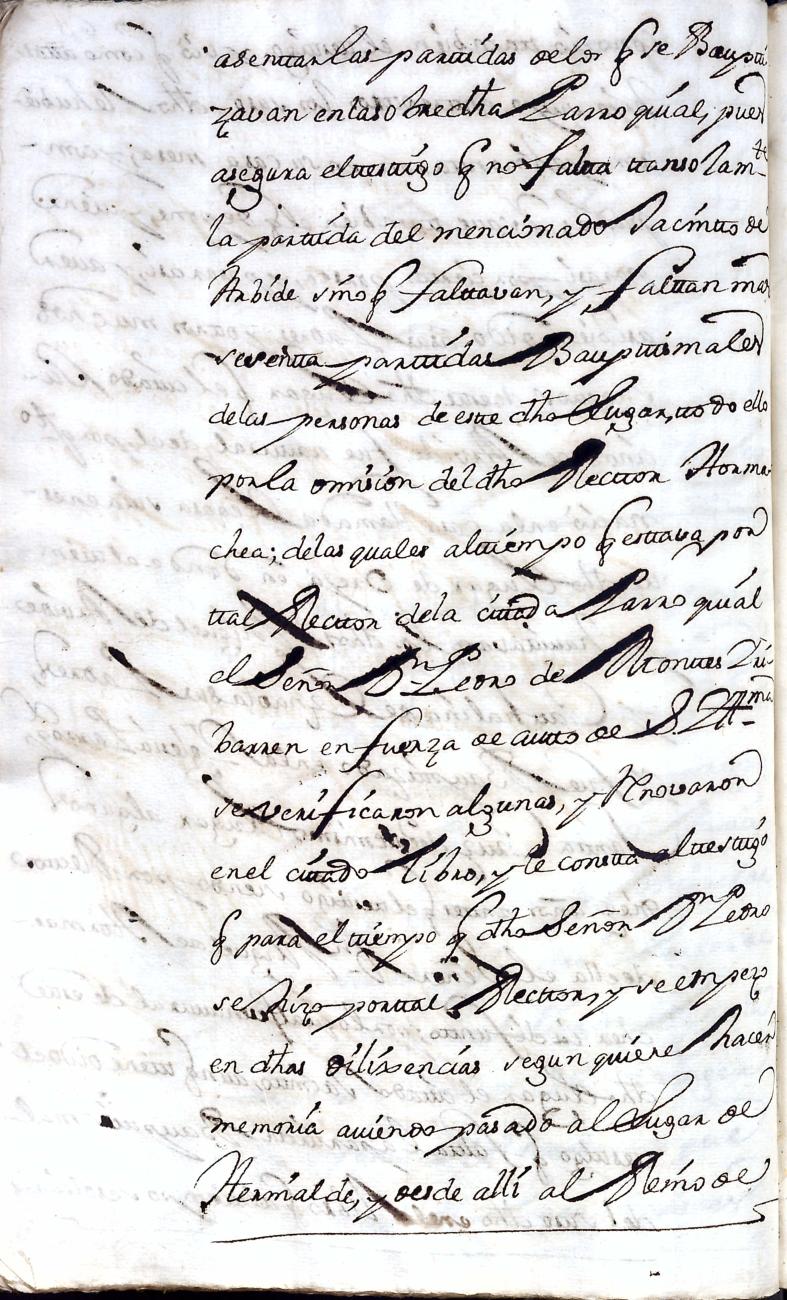 asenttar las parttidas de los q̃ se Baupti
zavan en la sobre dh̃a Parroquial, pues
asegura el testtigo q̃ no faltta ttan solam.te
la parttida del mencionado Jacintto de
Arbide sino q̃ falttavan, y falttan mas
sesentta parttidas Bauptismales
de las personas de estte dh̃o Lugar, ttodo ello
por la omision del dh̃o Recttor Horma-
chea; de las quales al ttiempo q̃ esttava por
ttal Recttor de la cittada Parroquial
el Señor D.n Pedro de Monttes Iri
barren en fuerza de autto de S. Ill.ma
se verificaron algunas, y Renovaron
en el cittado libro, y le constta al testtigo
q̃ para el ttiempo q̃ dh̃o Señor D.n Pedro
se hizo por ttal Recttor, y se empezo
en dh̃as dilixencias segun quiere hacer
memoria aviendo pasado al Lugar de
Hernialde, y desde alli al Reino de